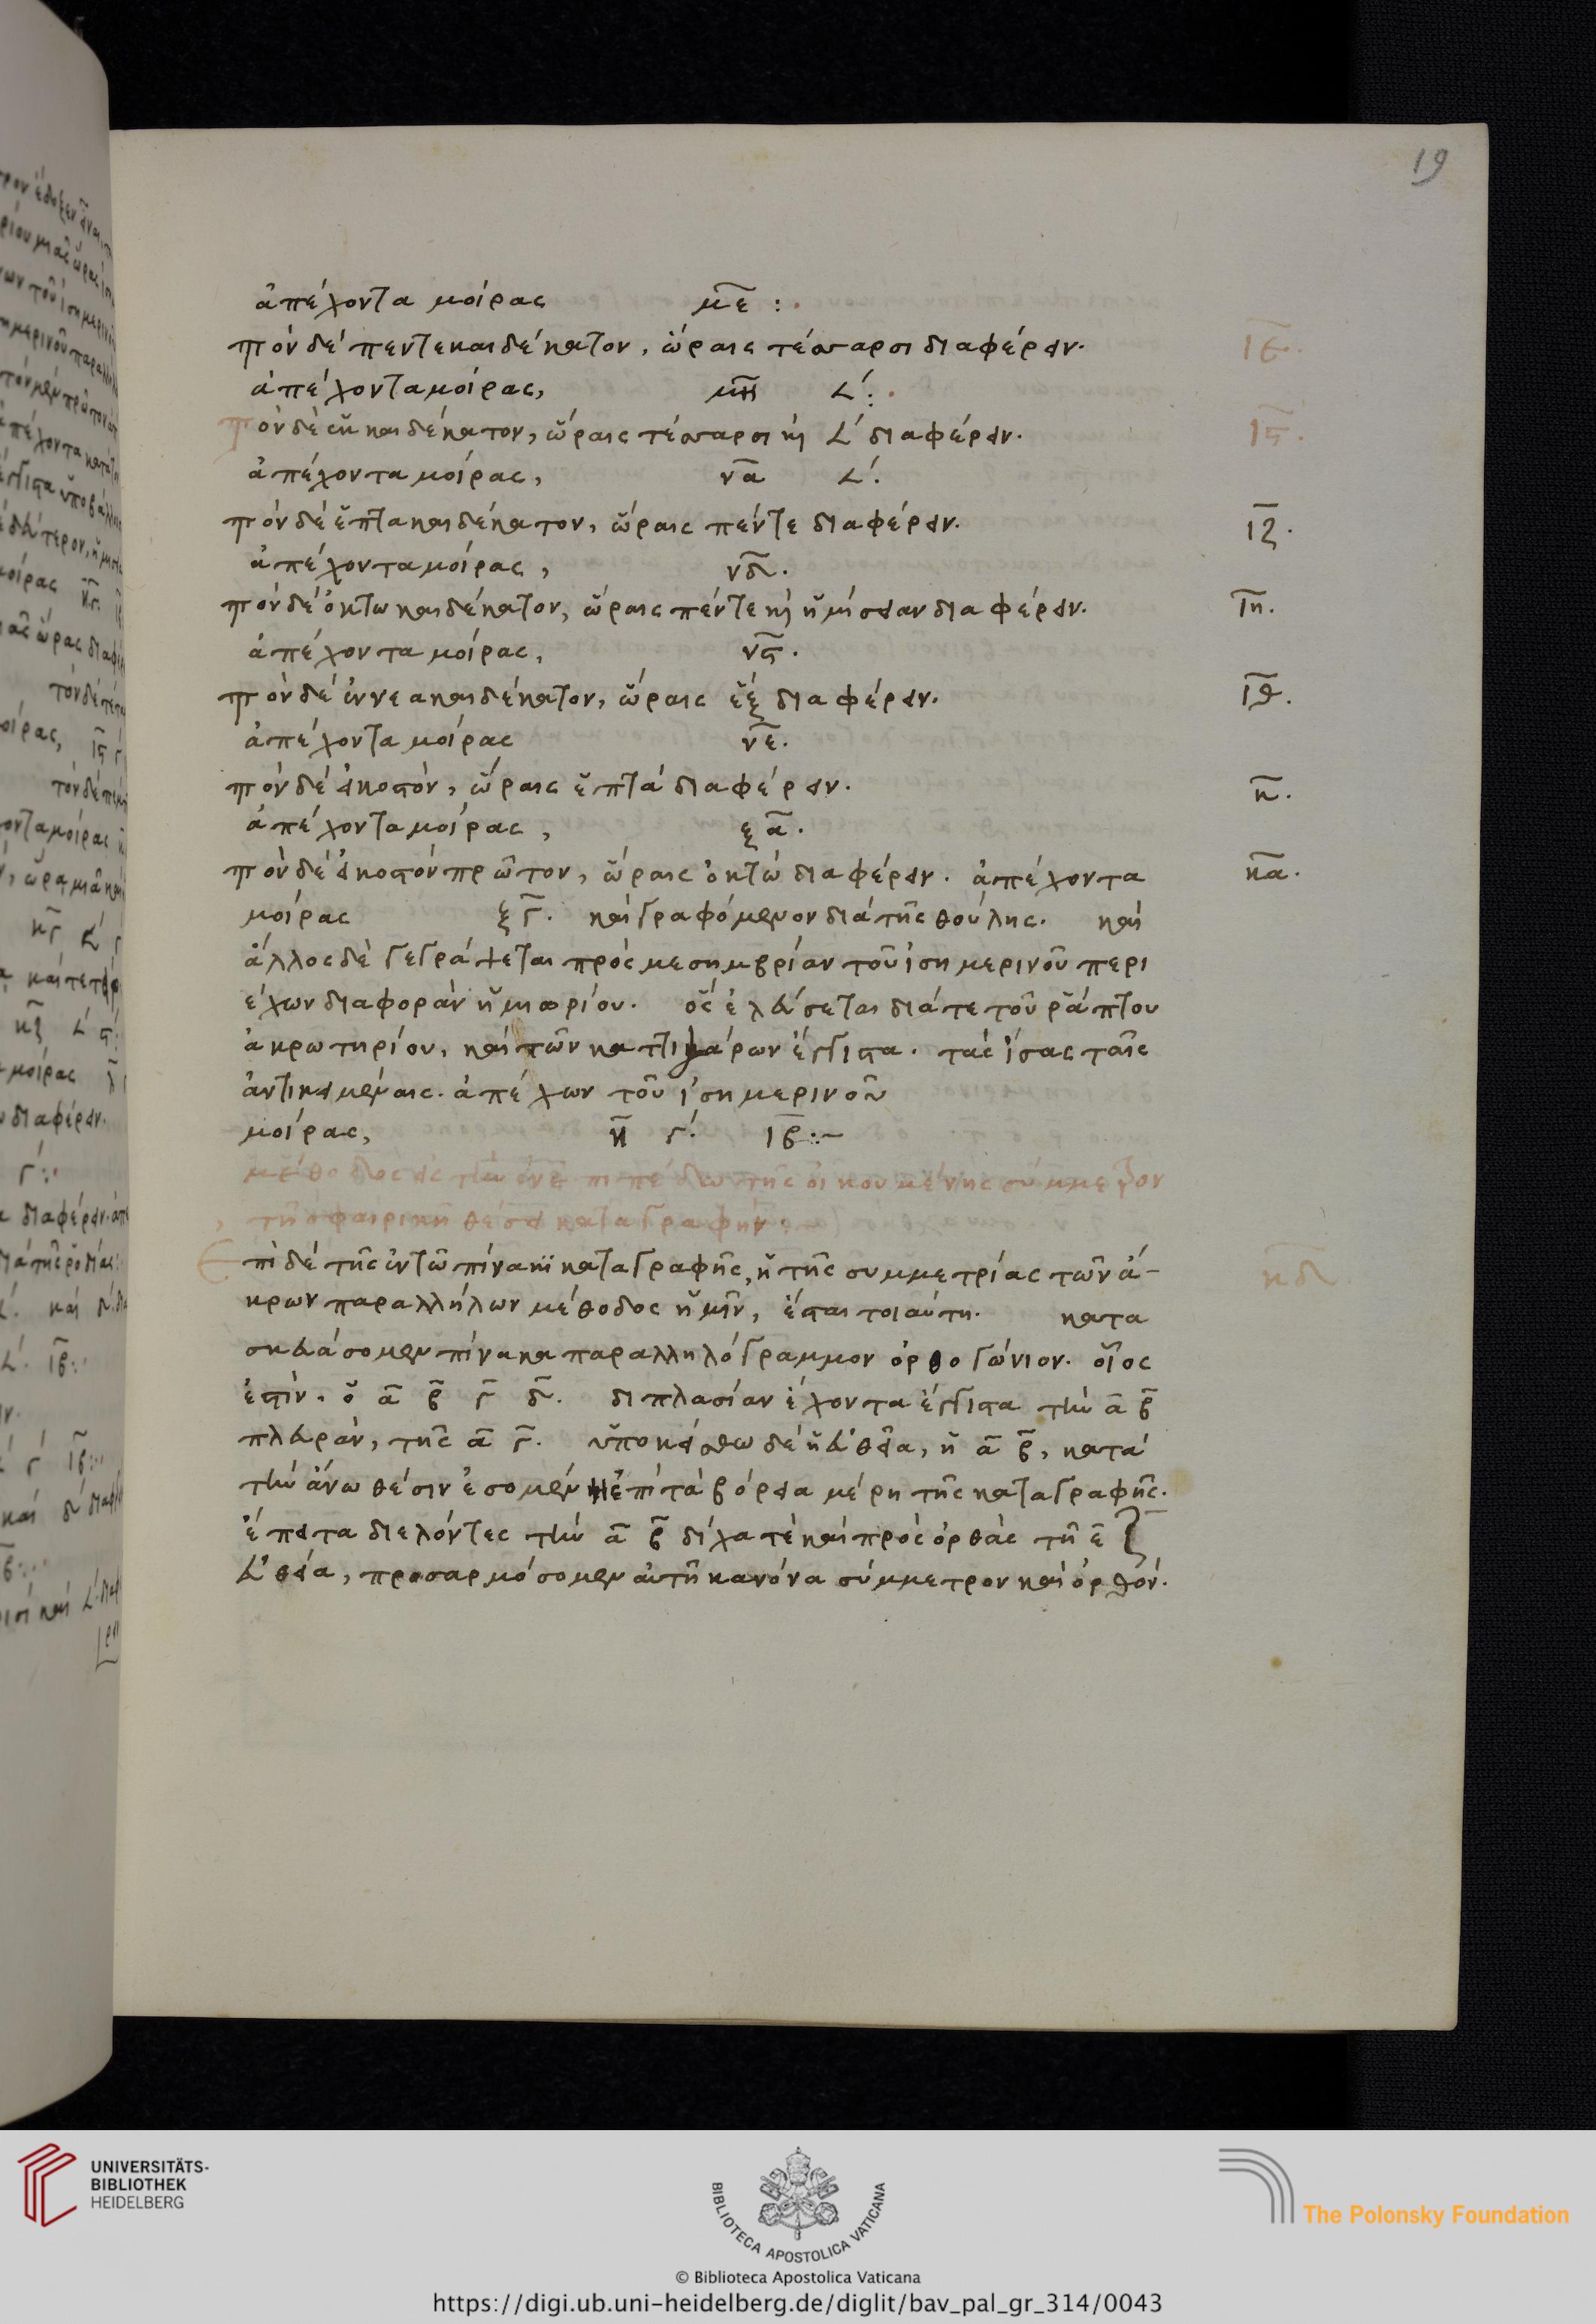 19
ἀπέχοντα μοίρας μ̅ε̅ :.
τὸν δὲ πεντεκαιδέκατον, ὥραις τέσσαρσι διαφέρειν. ι̅ε̅.
ἀπέχοντα μοίρας, μ̅η̅ 𐅵΄:.
τὸν δὲ ἑκκαιδέκατον, ὥραις τέσσαρσι κ 𐅵΄ διαφέρειν. ι̅ϛ̅.
ἀπέχοντα μοίρας, ν̅α̅ 𐅵΄.
τὸν δὲ ἑπτακαιδέκατον, ὥραις πέντε διαφέρειν. ι̅ζ̅.
ἀπέχοντα μοίρας, ν̅δ̅.
τὸν δὲ ὀκτωκαιδέκατον, ὥραις πέντε κ ἡμίσειαν διαφέρειν. ι̅η̅.
ἀπέχοντα μοίρας, ν̅ϛ̅.
τὸν δὲ ἐννεακαιδέκατον, ὥραις ἓξ διαφέρειν. ι̅θ̅.
ἀπέχοντα μοίρας ν̅ε̅.
τὸν δὲ εἰκοστόν, ὥραις ἑπτὰ διαφέρειν. κ̅.
ἀπέχοντα μοίρας, ξ̅α̅.
τὸν δὲ εἰκοστόν πρῶτον, ὥραις ὀκτὼ διαφέρειν. ἀπέχοντα κ̅α̅.
μοίρας ξ̅γ̅. καὶ γραφόμενον διὰ τῆς θούλης. καὶ
ἄλλος δὲ γεγράψεται πρὸς μεσημβρίαν τοῦ ἰσημερινοῦ περι
έχων διαφορὰν ἡμιωρίου. ὃς ἐλεύσεται διά τε τοῦ ῥάπτου
ἀκρωτηρίου, καὶ τῶν κατιγάρων ἔγγιστα. τὰς ἴσας ταῖς
ἀντικειμέναις. ἀπέχων τοῦ ἰσημερινοῦ
μοίρας, η̅ γ΄. ι̅β̅:~
μέθοδος εἰς τὴν ἐν ἐπιπέδω τῆς οἰκουμένης σύμμετρον
τῆ σφαιρικῆ θέσει καταγραφήν:
Ἐπὶ δὲ τῆς ἐν τῶ πίνακϊ καταγραφῆς, ἡ τῆς συμμετρίας τῶν ἄ- κ̅δ̅.
κρων παραλλήλων μέθοδος ἡμῖν, ἔσται τοιαύτη. κατα
σκευάσομεν πίνακα παραλληλόγραμμον ὀρθογώνιον. οἷος
ἐστίν. ὁ α̅ β̅ γ̅ δ̅. διπλασίαν ἔχοντα ἔγγιστα τὴν α̅ β̅
πλευράν, τῆς α̅ γ̅. ὑποκείσθω δὲ ἡ εὐθεῖα, ἡ α̅ β̅, κατὰ
τὴν ἄνω θέσιν ἐσομένη ἐπὶ τὰ βόρεια μέρη τῆς καταγραφῆς.
ἔπειτα διελόντες τὴν α̅ β̅ δίχα τὲ καὶ πρὸς ὀρθὰς τῆ ε̅ ζ̅
εὐθεία, προσαρμόσομεν αὐτῆ κανόνα σύμμετρον καὶ ὀρθόν.
UNIVERSITÄTS-
BIBLIOTHEK
HEIDELBERG
BIBLIOTECA APOSTOLICA VATICANA
The Polonsky Foundation
© Biblioteca Apostolica Vaticana
https://digi.ub.uni-heidelberg.de/diglit/bav_pal_gr_314/0043